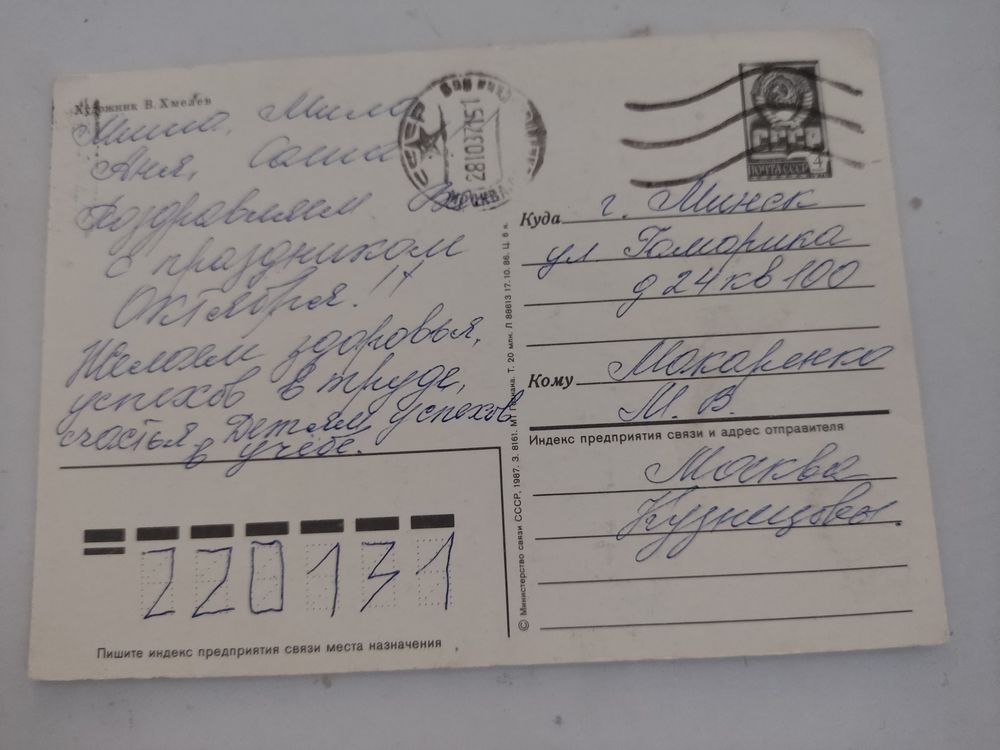 Художник В. Хмелев
Миша, Мила
Аня, Саша
Поздравляем Вас
с праздником
Октября!!!
Желаем здоровья,
успехов в труде,
счастья, Детям успехов
в учёбе.
220131
Пишите индекс предприятия связи места назначения
© Министерство связи СССР, 1987. З. 8161. МТ Гознака. Т. 20 млн. Л 88613 17.10.86. Ц. 6 к.
СССР
МОСКВА
СССР
ПОЧТА СССР
4
Куда г. Минск
ул Гамарника
д 24 кв 100
Кому Макаренко
М. В.
Индекс предприятия связи и адрес отправителя
Москва
Кузнецовы.